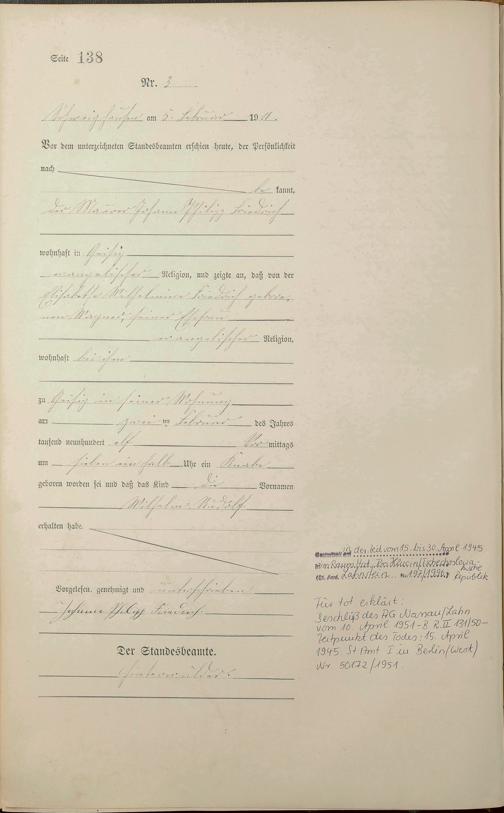 Seite 138
Nr. 3
Schweighausen am 5. Februar 1911.
Vor dem unterzeichneten Standesbeamten erschien heute, der Persönlichkeit
nach
be kannt,
der Maurer Johann Philipp Friedrich
wohnhaft in Geisig
evangelischer Religion, und zeigte an, daß von der
Elisabeth Wilhelmine Friedrich gebore-
nen Wagner, seiner Ehefrau
evangelischer Religion,
wohnhaft bei ihm
zu Geisig in seiner Wohnung
am zwei ten Februar des Jahres
tausend neunhundert elf Vor mittags
um sieben ein halb Uhr ein Knabe
geboren worden sei und daß das Kind die Vornamen
Wilhelm Rudolf
erhalten habe.
Vorgelesen, genehmigt und unterschrieben
Johann Philipp Friedrich
Der Standesbeamte.
in der Zeit vom 15. bis 30. April 1945
Für tot erklärt:
Beschluß des AG Nassau/Lahn
vom 10. April 1951 - 8 R. II 131/50 -
Zeitpunkt des Todes: 15. April
1945. St. Amt I in Berlin (West)
Nr. 50172/1951.